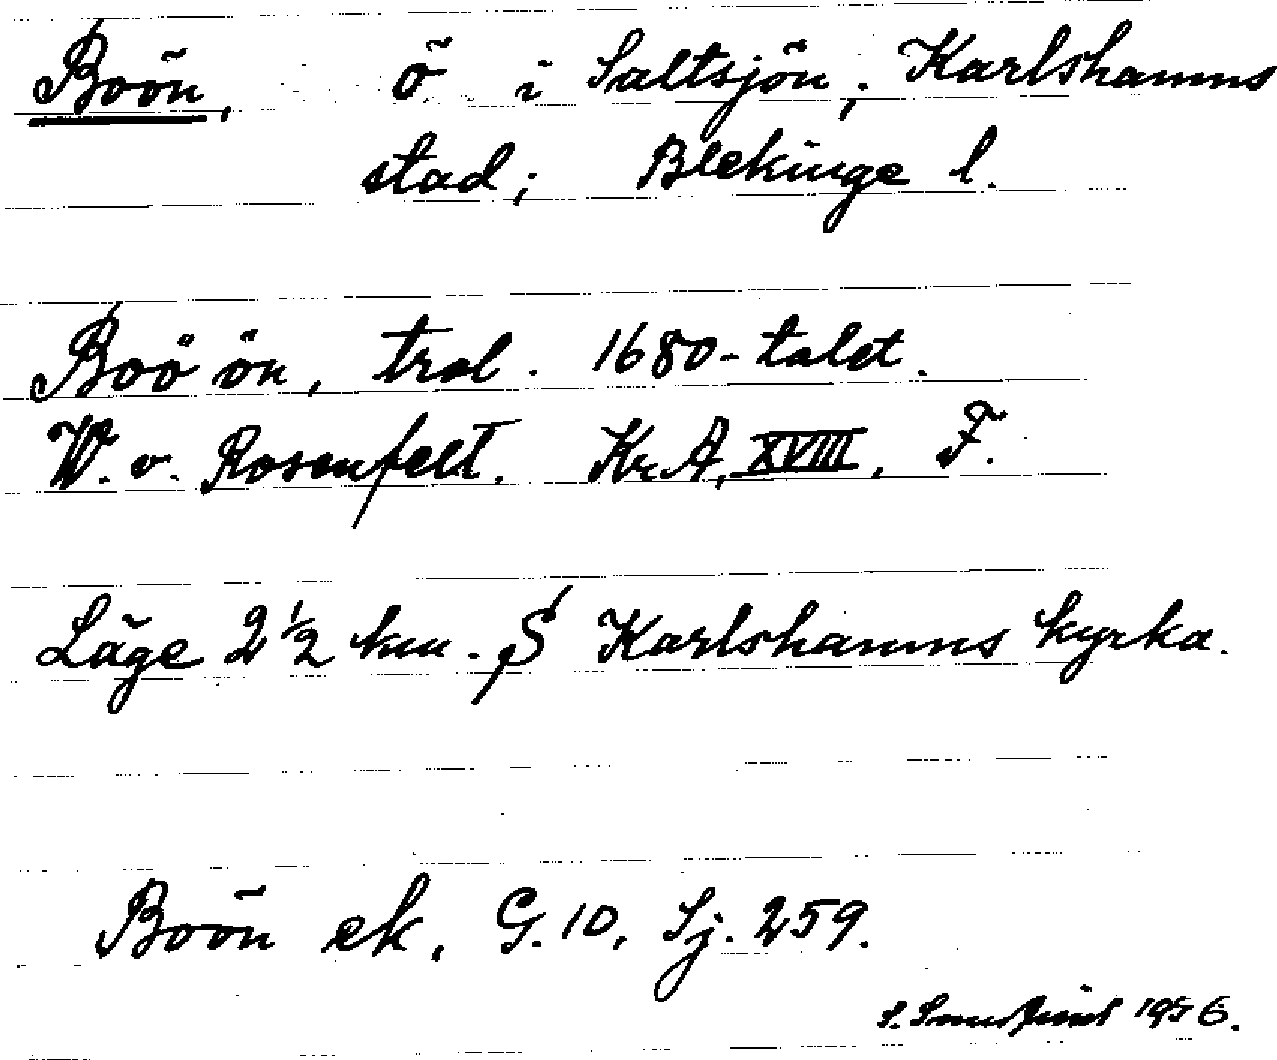 Boön, ö i Saltsjön; Karlshamns
stad; Blekinge l.
Boö ön, trol. 1680-talet.
W. v. Rosenfelt. Kr.A. XVIII. F.
Läge 2 1/2 km. S Karlshamns kyrka.
Boön ek. G. 10. Sj. 259.
S. 1956.